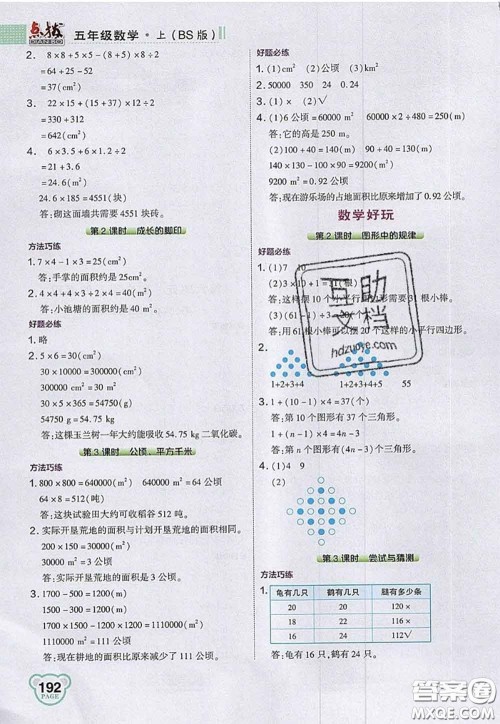 点拨
DIANBO
五年级数学·上(BS版)
2. 8×8+5×5-(8+5)×8÷2
=64+25-52
=37(cm²)
3. 22×15+(15+37)×12÷2
=330+312
=642(cm²)
4. 6×3.5+6×1.2÷2
=21+3.6
=24.6(m²)
24.6×185=4551(块)
答:砌这面墙共需要4551块砖。
第2课时 成长的脚印
方法巧练
1. 7×4-1×3=25(cm²)
答:手掌的面积约是25cm²。
2. 4×4+4×3÷2×4=40(m²)
答:小池塘的面积约是40 m²。
好题必练
1. 略
2. 5×6=30(cm²)
30×10000=300000(cm²)
300000cm²=30 m²
30×5×365=54750(g)
54750 g=54.75 kg
答:这棵玉兰树一年大约能吸收54.75 kg二氧化碳。
第3课时 公顷、平方千米
方法巧练
1. 800×800=640000(m²) 640000m²=64公顷
64×8=512(吨)
答:这块试验田大约可收稻谷512吨。
2. 实际开垦荒地的面积与计划开垦荒地的面积相同。
200×150=30000(m²)
30000m²=3公顷
答:实际开垦荒地的面积是3公顷。
3. 1700-500=1200(m)
1500-1200=300(m)
1700×1500-1200×1200=1110000(m²)
1110000 m²=111公顷
答:现在耕地的面积大约减少了111公顷。
192
PAGE
好题必练
1. (1)cm² (2)公顷 (3)km²
2. 50000 350 24 0.24
3. (1)× (2)× (3)√
4. (1)6公顷=60000 m² 60000×2÷480=250(m)
答:它的高是250 m。
(2)100+40=140(m) 90+40=130(m)
140×130-100×90=9200(m²)
9200 m²=0.92公顷
答:现在游乐场的占地面积比原来增加了0.92公顷。
数学好玩
第2课时 图形中的规律
好题必练
2.
1+2+3+4
1+2+3+4+5
55
答:第10个图形有37个三角形。
4. (1)4 9
(2)
第3课时 尝试与猜测
方法巧练
1. 龟有几只 鹤有几只 腿有多少条
20 20 120×
18 22 116×
16 24 112√
答:龟有16只,鹤有24只。
互助文档
hdzuoye.com
答案圈
MXQE.COM